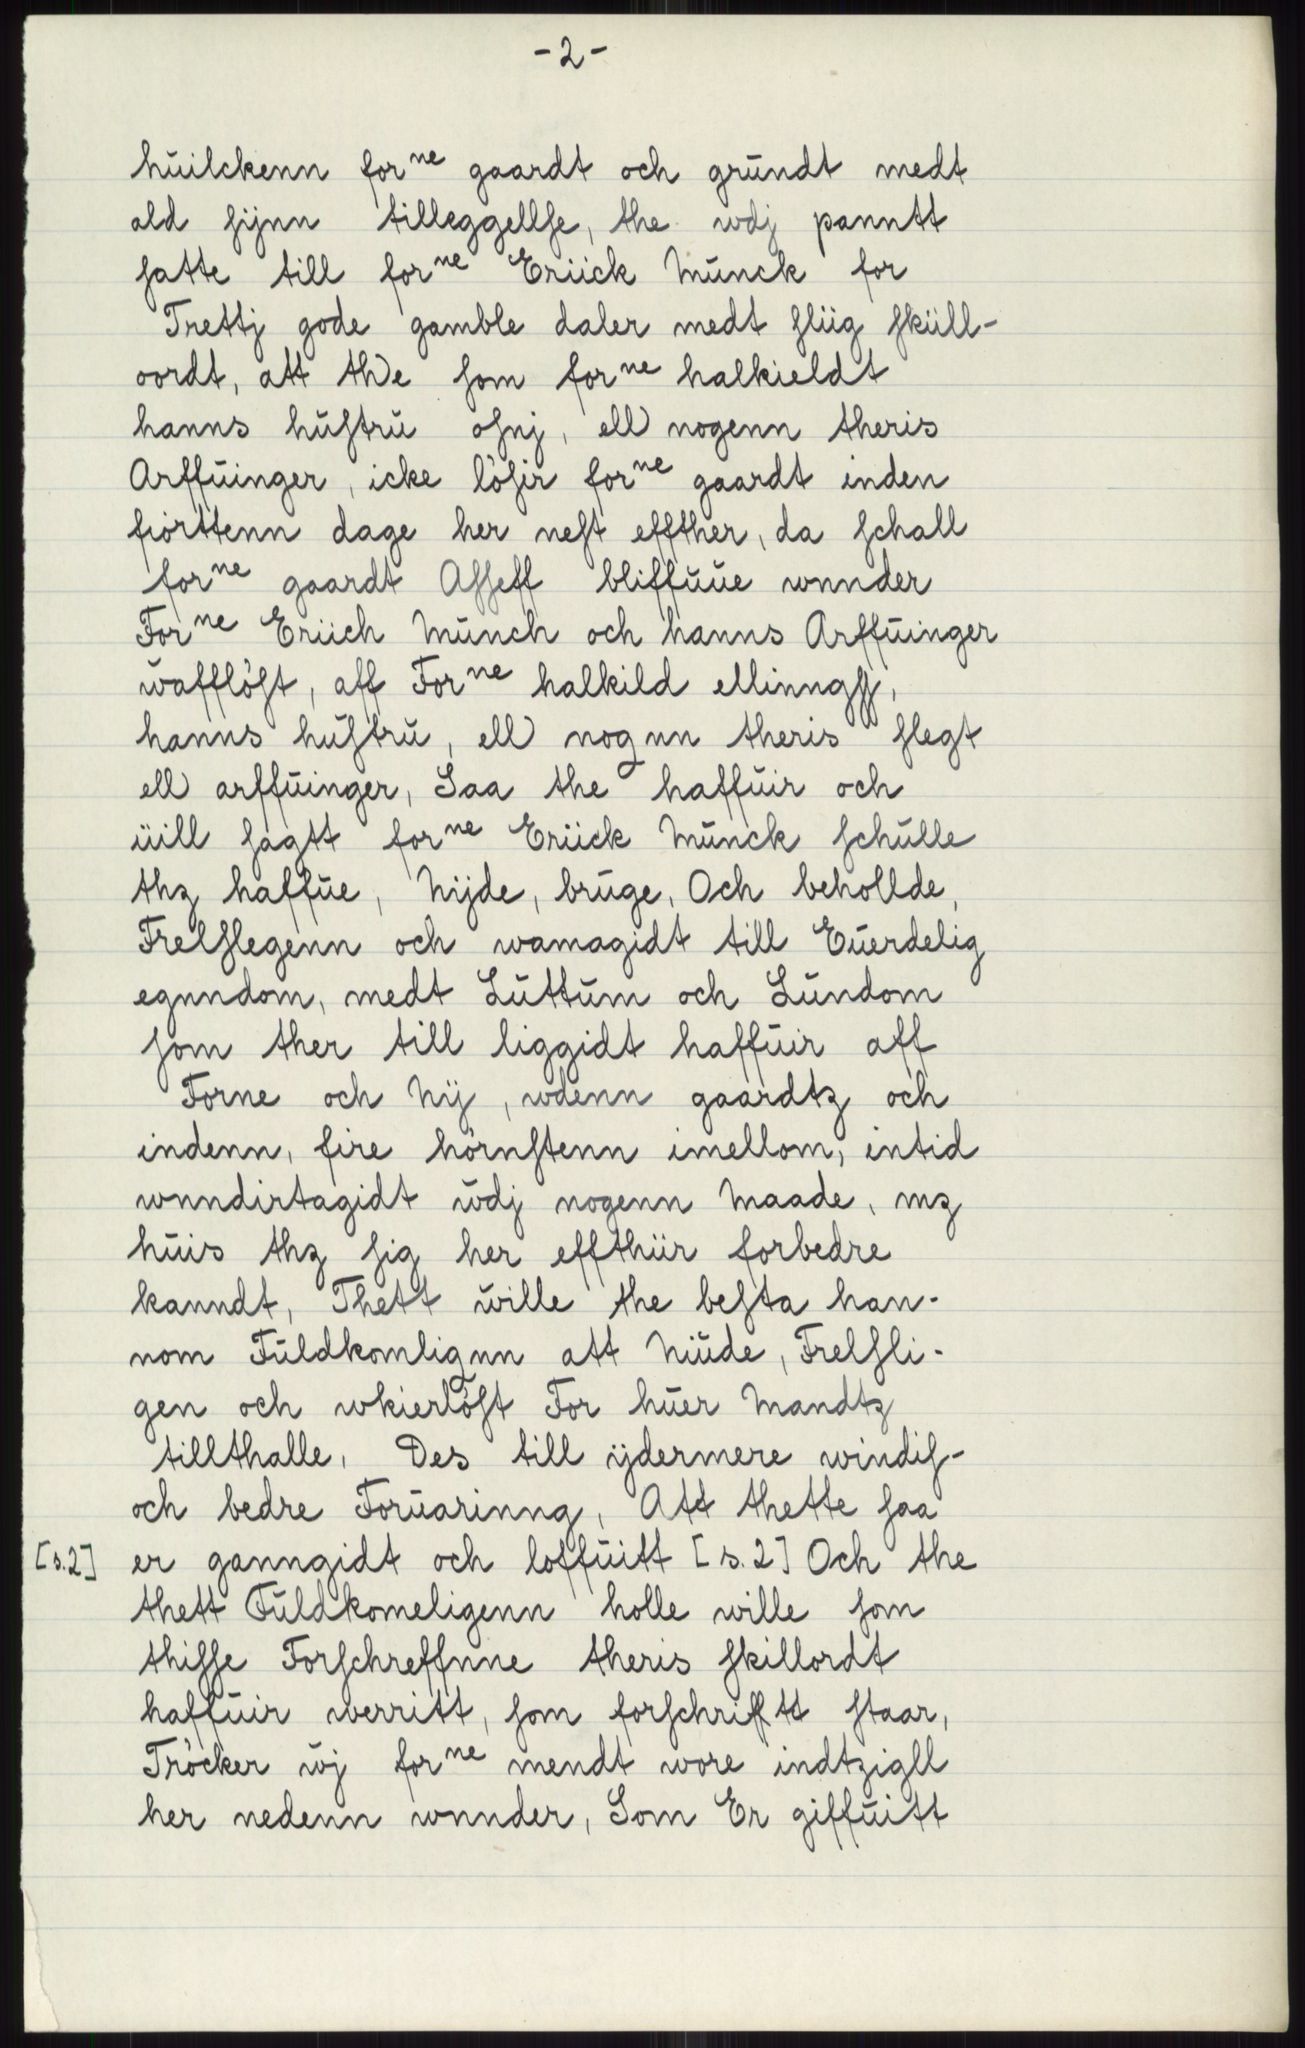 -2-
huilckenn for^ne gaardt och grŭndt medt
ald ſijnn tilleggellſe, the wdj panntt
ſatte till for^ne Eriick Mŭnck for
Trettj gode gamble daler medt ſliig ſküll-
oordt, att the ſom for^ne halkieldt
hanns hŭſtrŭ oſnj, ell nogenn theris
Arffŭinger, icke löſir for^ne gaardt inden
fiorttenn dage her neſt effther, da ſchall
for^ne gaardt Aſſeff bliffŭŭe wnnder
For^ne Eriich Mŭnch och hanns Arffŭinger
w̆afflöſt, aff For^ne halkild ellinngſſ,
hanns hŭſtrŭ, ell nognn theris ſlegt
ell arffŭinger, Saa the haffŭir och
üill ſagtt for^ne Eriick Mŭnck ſchŭlle
thz haffŭe, Nijde, brŭge, Och behollde,
Frelſlegenn och wamagidt till Eŭerdelig
egnndom, medt Lŭttŭm och Lŭndom
ſom ther till liggidt haffŭir aff
Forne och Nij, wdenn gaardtz och
indenn, fire hörnſtenn imellom, intid
wnndirtagidt w̆dj nogenn Maade, mz
hŭis thz ſig her effthiir forbedre
kanndt, Thett w̆ille the beſta han-
nom Fŭldkomlignn att Niŭde, Frelſli-
gen och wkierlöſt For hŭer Mandtz
tillthalle, Des till ijdermere windiſ-
och bedre Forŭarinng, Att thette ſaa
[s.2] er ganngidt och loffŭitt [s.2] Och the
thett Fŭldkomeligenn holle wille ſom
thiſſe Forſchreffnne theris ſkillordt
haffŭir werritt, ſom forſchrifftt ſtaar,
Tröcker w̆j for^ne mendt wore indtzigll
her nedenn wnnder, Som Er giffŭitt